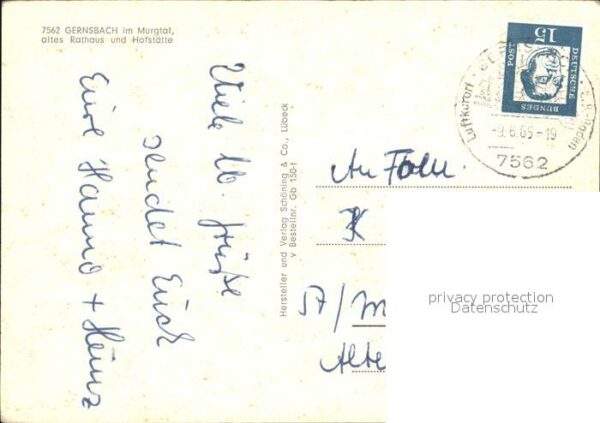 7562 GERNSBACH im Murgtal,
altes Rathaus und Hofstätte
Viele lb. Grüße
sendet Euch
Eure Hanno + Heinz
Hersteller und Verlag Schöning & Co., Lübeck
Bestellnr. Gb 150-1
15
DEUTSCHE
BUNDES
POST
Luftkurort
-9.6.65-19
7562
An Fam.
57/
Alte
privacy protection
Datenschutz